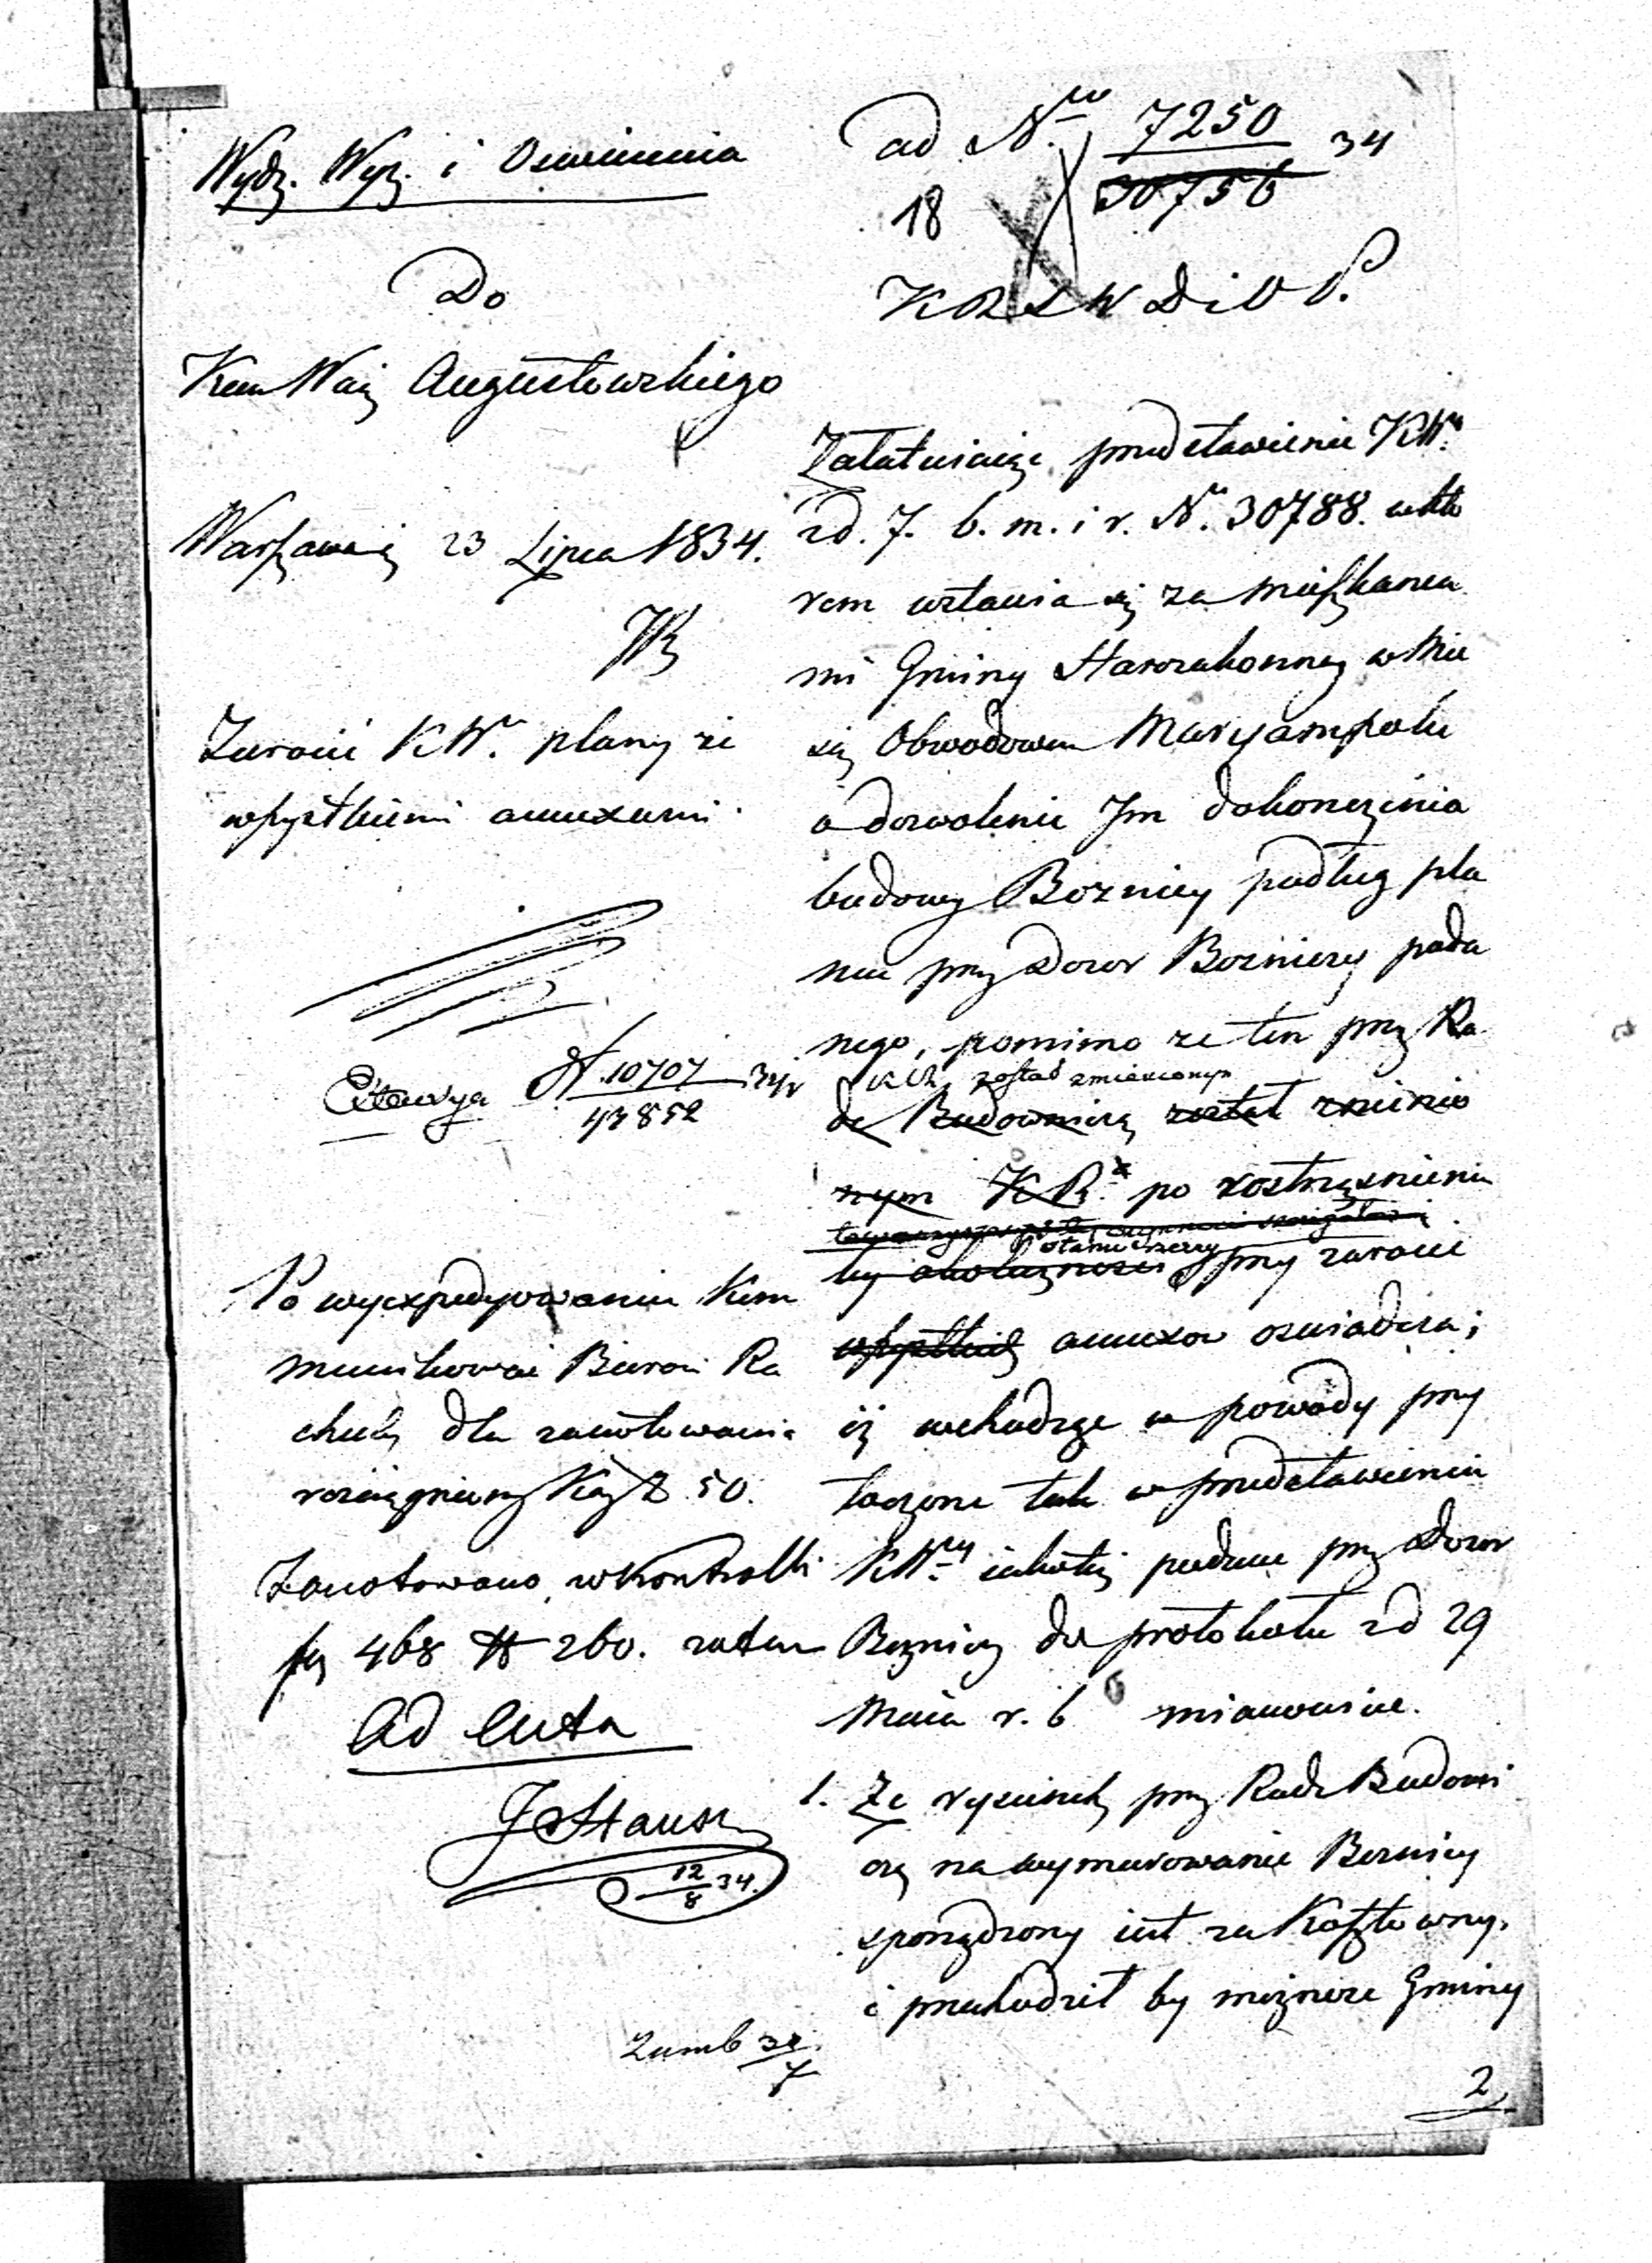 Wydz. Wyz. i Oswiecenia
Do
Kom Woiy Augustowskiego
Warszawie 23 Lipca 1834.
Zwrocic KWu. plany ze
wszystkiemi annexami.
N. 10707
43852
Po wyexpedyowaniu Kom
munikowac Biorowi Ra
chuby dla zanotowania
Zanotowano w Kontrolli
468 # 260. zatem
Ad Acta
12/8 34.
ad Nru 7250 34
30756
18
KRSWDiOP.
Załatwiaiąc przedstawienie KWu
zd. 7. b. m. i r. Nu. 30788. w któ
rem wstawia się za mieszkanca
mi Gminy Starozakonney w Mie
ście Obwodowem Maryampolu
o dozwolenie Im dokonczenia
budowy Boznicy podług pla
nu przez Dozor Bozniczy poda
nego, pomimo ze ten przez Ra
został zmienionym
dę Budowniczą został zmienio
nym KR. po rostrząsnieniu
tey okolicznosci przy zwrocie
wszystkich annexow oswiadcza;
iż wchodząc w powody przy
toczone tak w przedstawieniu
KWey iakoteż podane przez Dozor
Boznicy do protokołu zd 29
Maia r. b mianowicie.
1. Ze rysunek przez Radę Budowni
czą na wymurowanie Boznicy
sporządzony iest za Kosztowny.
i przechodził by możnosc Gminy
2